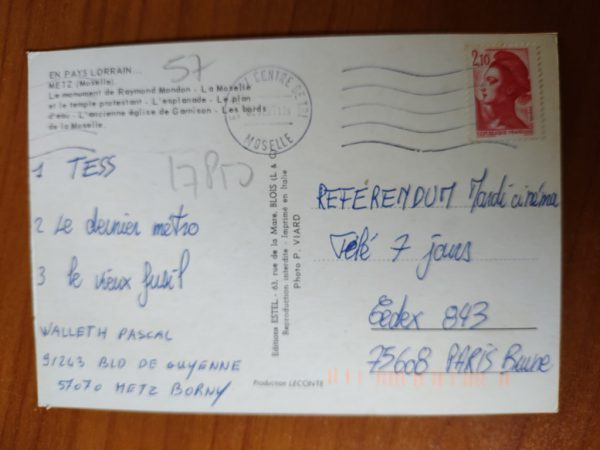 EN PAYS LORRAIN...
METZ (Moselle)
Le monument de Raymond Mondon - La Moselle
et le temple protestant - L'esplanade - Le plan
d'eau - L'ancienne église de Garnison - Les bords
de la Moselle.
57
CENTRE DE TRI
MOSELLE
2,10
REPUBLIQUE FRANÇAISE
1 TESS
2 Le dernier métro
3 le vieux fusil
WALLETH PASCAL
9/243 BLD DE GUYENNE
57070 METZ BORNY
Editions ESTEL - 63, rue de la Mare, BLOIS (L & C)
Reproduction interdite - Imprimé en Italie
Photo P. VIARD
Production LECONTE
REFERENDUM Mardi cinéma
Télé 7 jours
Cedex 843
75608 PARIS Brune